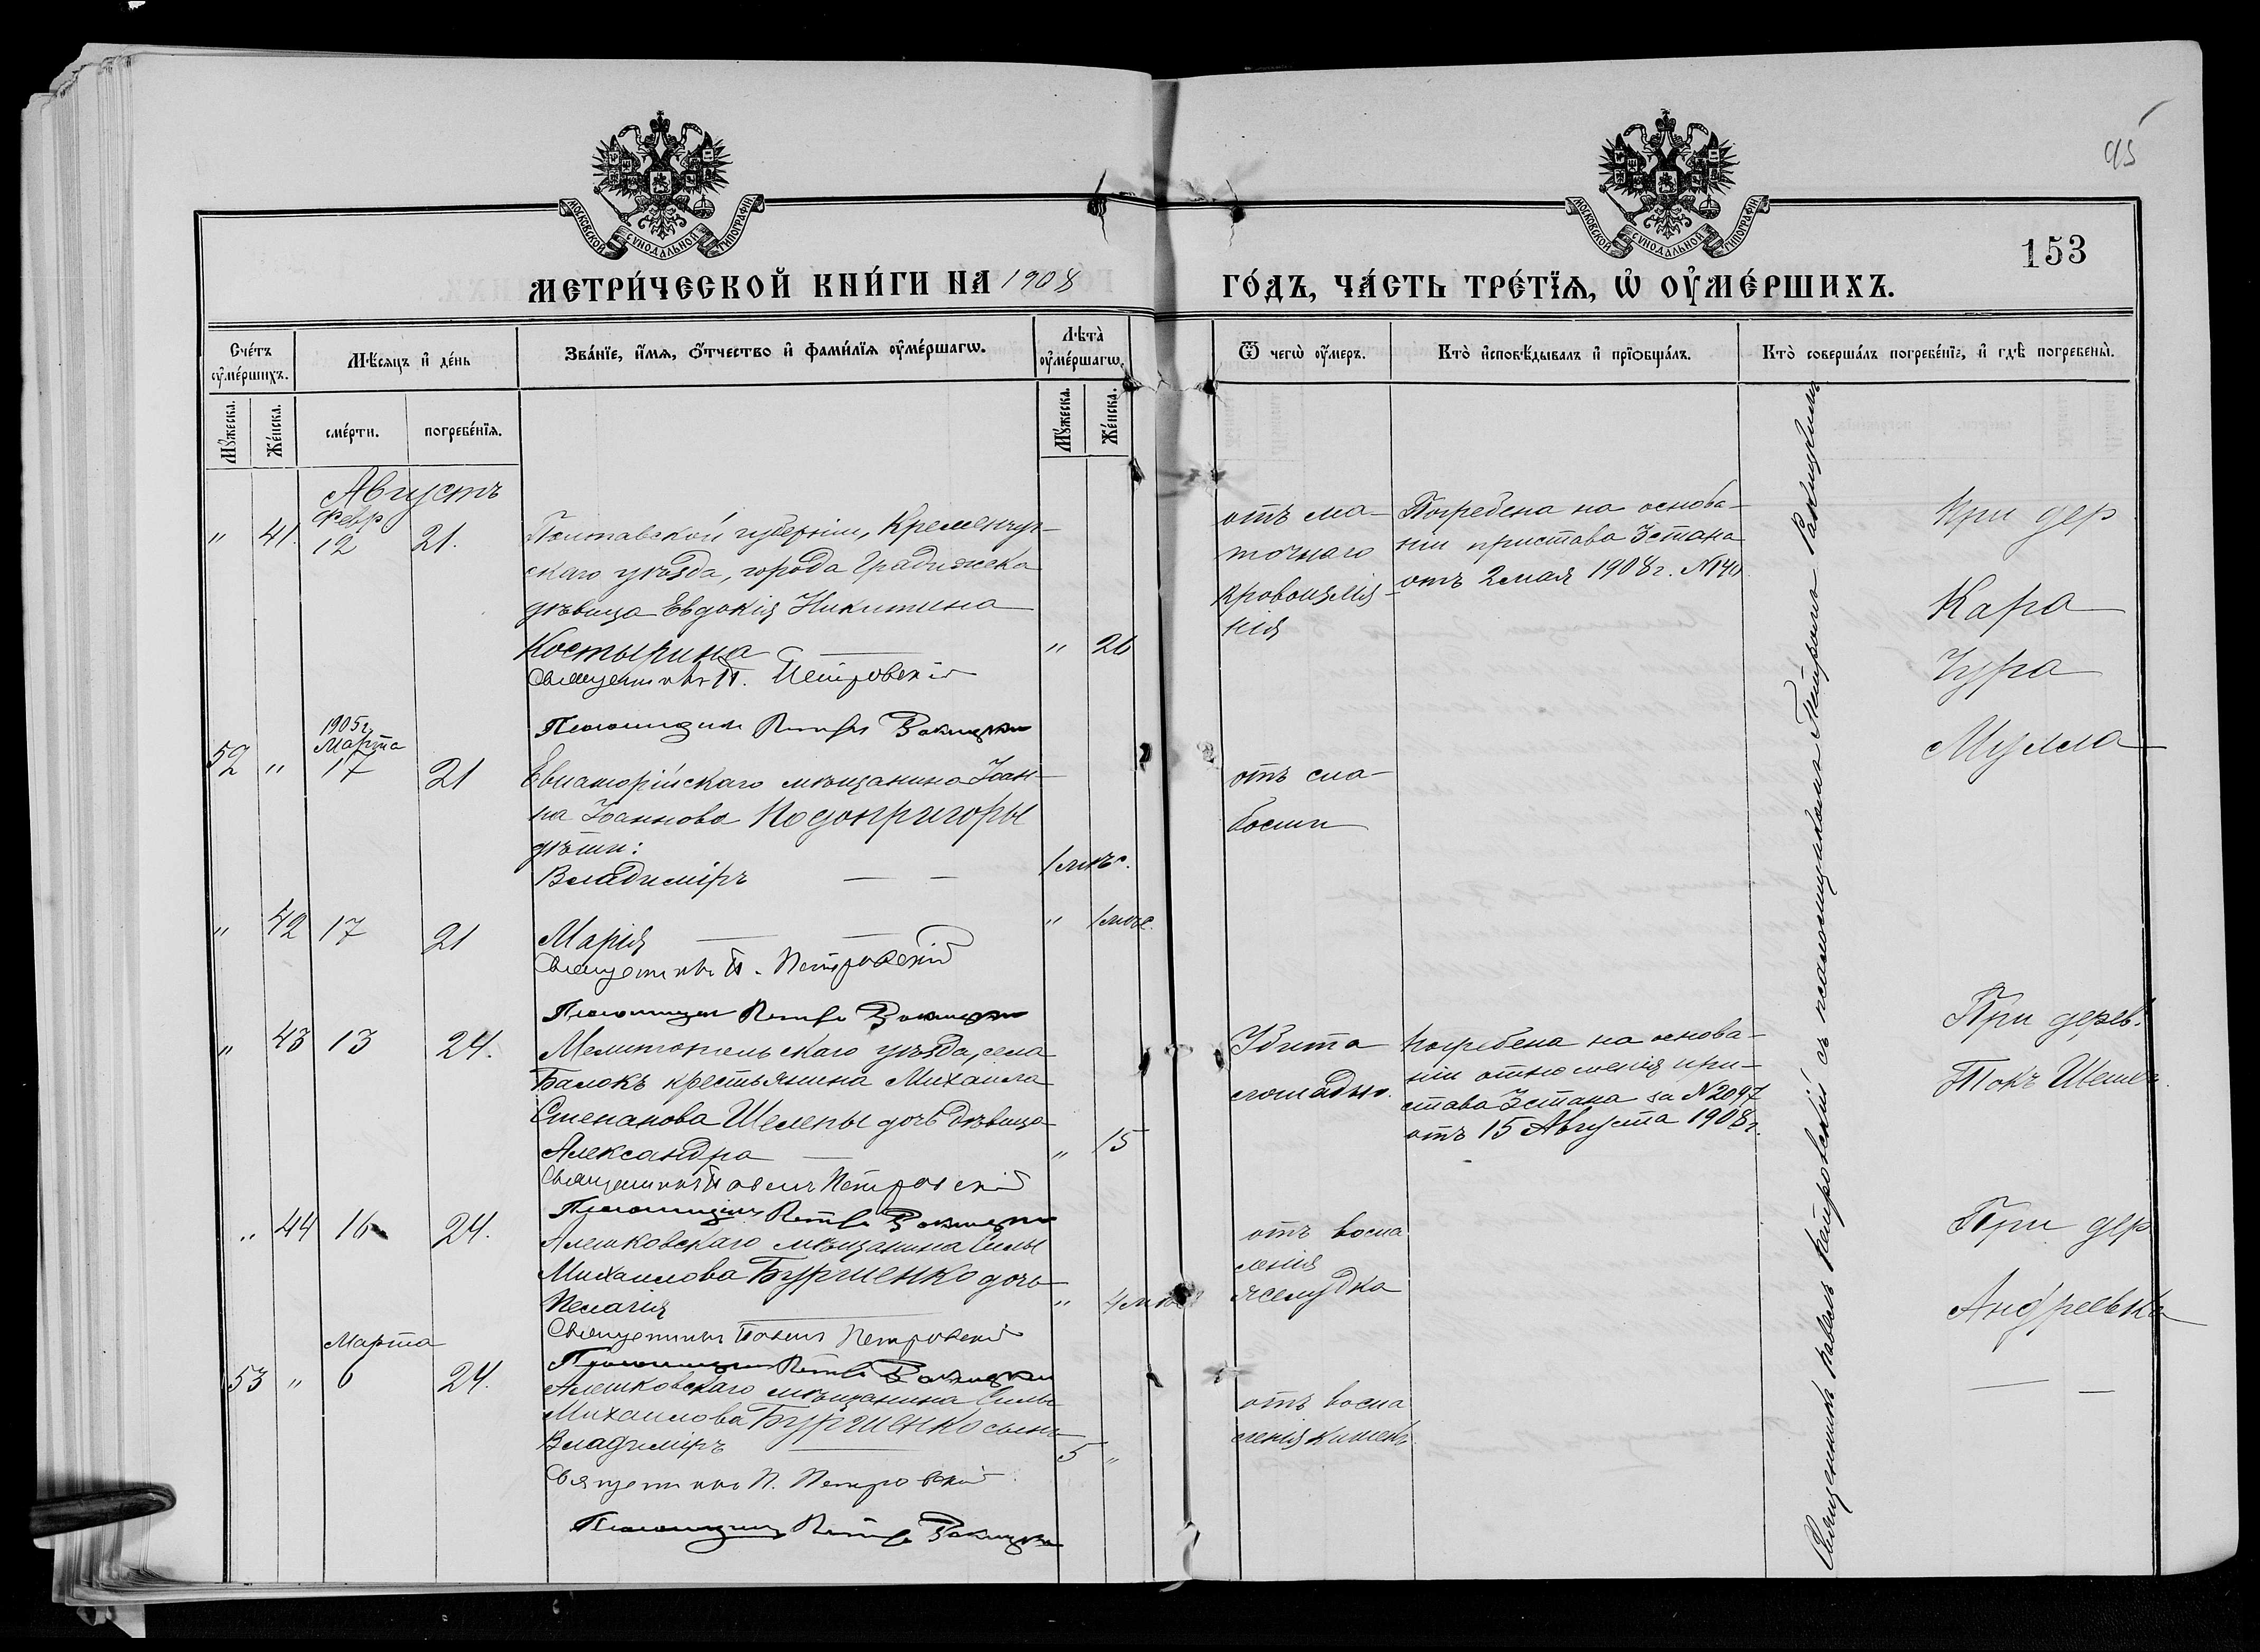 95
153
МОСКОВСКОЙ СУНОДАЛЬНОЙ ТИПОГРАФІИ
МОСКОВСКОЙ СУНОДАЛЬНОЙ ТИПОГРАФІИ
МЕТРИ́ЧЕСКОЙ КНИ́ГИ НА 1908 ГО́ДЪ, ЧА́СТЬ ТРЕ́ТЇѦ, Ѡ҆ ОУ҆МЕ́РШИХЪ.
Сче́тъ оу҆ме́ршихъ.
Мѣ́сѧцъ и҆ де́нь
Зва́нїе, и҆́мѧ, о҆́тчество и҆ фами́лїѧ оу҆ме́ршагѡ.
Лѣта̀ оу҆ме́ршагѡ.
Ѿ чегѡ̀ оу҆́меръ.
Кто̀ и҆сповѣ́дывалъ и҆ прїѡбща́лъ.
Кто̀ соверша́лъ погребе́нїе, и҆ гдѣ̀ погребены̀.
Мꙋ́жеска.
Же́нска.
сме́рти.
погребе́нїѧ.
Мꙋ́жеска.
Же́нска.
Августъ
Февр
" 41. 12 21. Полтавской губерніи, Кременчуг-
скаго уѣзда, города Градижска
дѣвица Евдокія Никитина
Костырина " 26
Священникъ П. Петровскій
Псаломщикъ Петръ Ракицкій
отъ ма-
точнаго
кровоизлія-
нія
Погребена на основа-
ніи пристава 3 стана
отъ 2 мая 1908 г.
При дер
Кара
Чура
Мулла
1905 г.
Марта
52 " 17 21 Евпаторійскаго мѣщанина Іоан-
на Іоаннова Подопригоры
дѣти:
Владиміръ — — 1 мѣс.
отъ сла-
бости
" 42 17 21 Марія — — " 1 мѣс.
Священникъ П. Петровскій
Псаломщикъ Петръ Ракицкій
" 43 13 24. Мелитопольскаго уѣзда, села
Балокъ крестьянина Михаила
Степанова Шелепы дочь дѣвица
Александра — " 15
Священникъ Павелъ Петровскій
Псаломщикъ Петръ Ракицкій
Убита
лошадью.
Погребена на основа-
ніи отношенія при-
става 3 стана за № 2097
отъ 15 Августа 1908 г.
При дерев.
Токъ
" 44 16 24. Алешковскаго мѣщанина Силы
Михаилова Бурченко дочь
Пелагія " 4 мѣс
Священникъ Павелъ Петровскій
Псаломщикъ Петръ Ракицкій
отъ воспа
ленія
желудка
При дер
Андреевка
Марта
53 " 6 24. Алешковскаго мѣщанина Силы
Михаилова Бурченко сынъ
Владиміръ 5 "
Священникъ П. Петровскій
Псаломщикъ Петръ Ракицкій
отъ воспа
ленія кишекъ
— —
Священникъ Павелъ Петровскій съ псаломщикомъ Петромъ Ракицкимъ